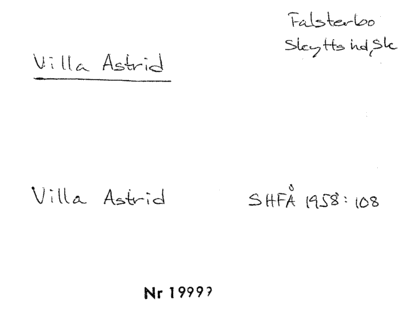 Falsterbo
Skytts hd, Sk
Villa Astrid
Villa Astrid SHFÅ 1958:108
Nr 19997